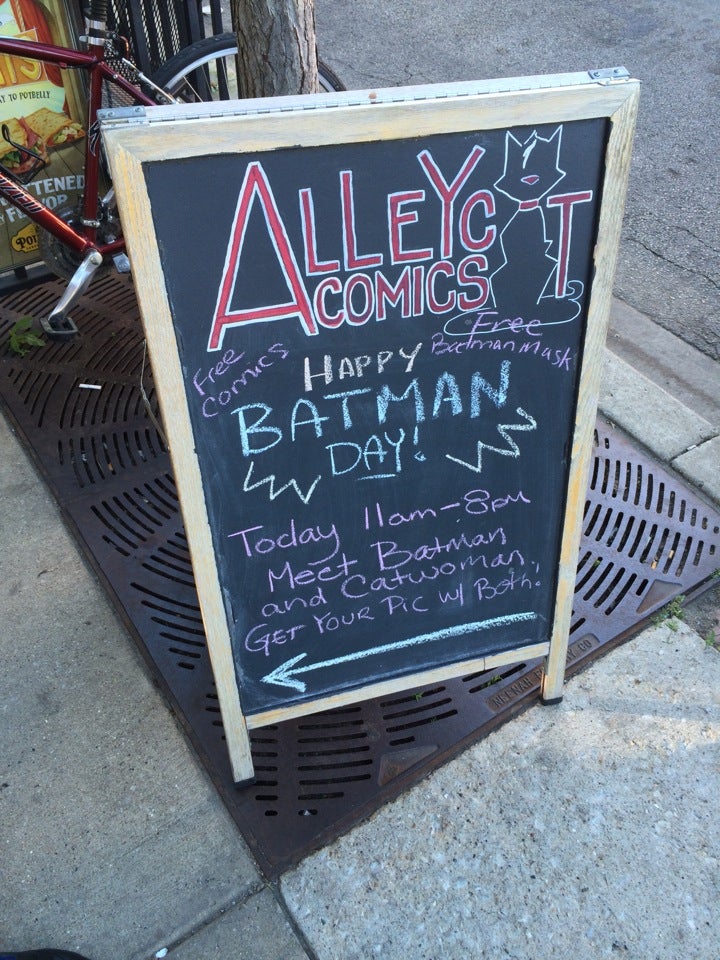 ALLEYCAT
COMICS
Free
Comics
Free
Batman mask
HAPPY
BATMAN
DAY!
Today 11am-8pm
Meet Batman
and Catwoman.
GET YOUR PIC w/ Both!
Y TO POTBELLY
NEENAH